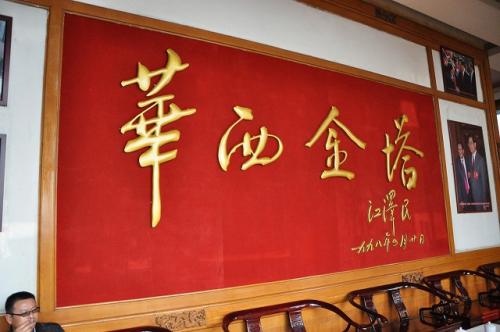 華西金塔
江澤民
一九九八年二月廿日